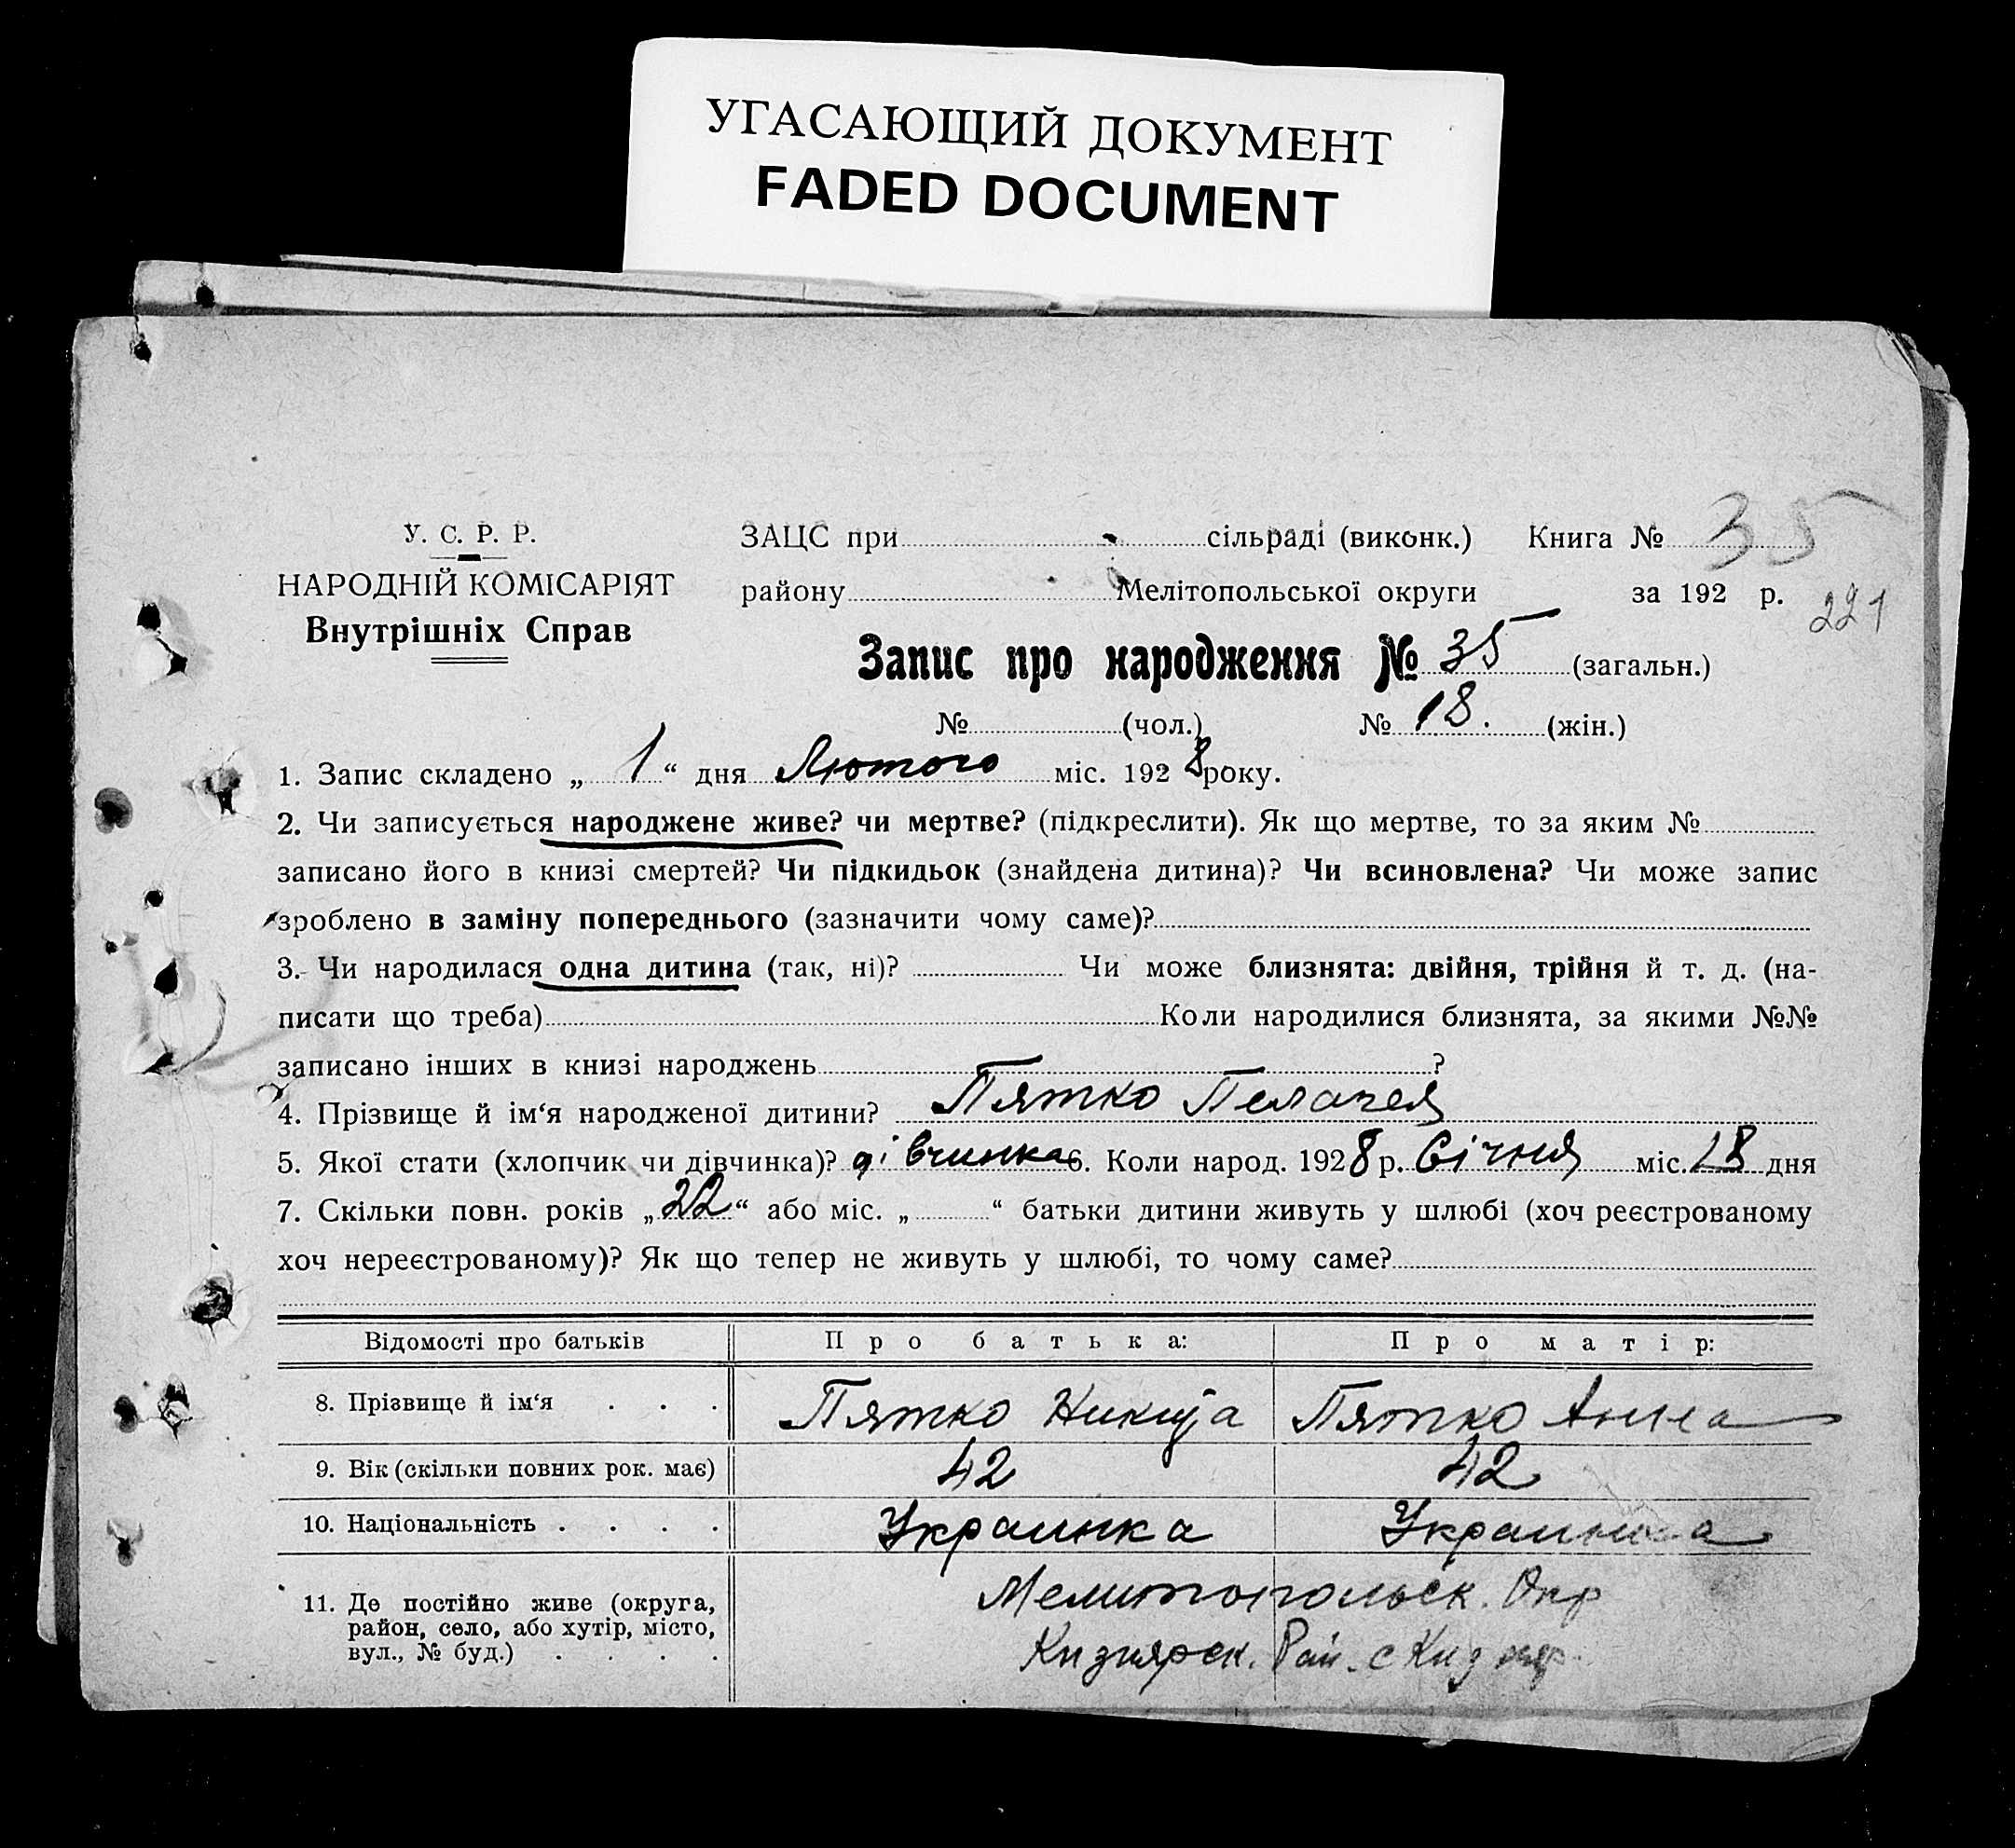 УГАСАЮЩИЙ ДОКУМЕНТ
FADED DOCUMENT
У. С. Р. Р.
НАРОДНІЙ КОМІСАРІЯТ
Внутрішніх Справ
ЗАЦС при сільраді (виконк.) Книга № 35
району Мелітопольської округи за 192 р.
221
Запис про народження № 35 (загальн.)
№ (чол.) № 18. (жін.)
1. Запис складено „ 1 “ дня Лютого міс. 1928 року.
2. Чи записується народжене живе? чи мертве? (підкреслити). Як що мертве, то за яким №
записано його в книзі смертей? Чи підкидьок (знайдена дитина)? Чи всиновлена? Чи може запис
зроблено в заміну попереднього (зазначити чому саме)?
3. Чи народилася одна дитина (так, ні)? Чи може близнята: двійня, трійня й т. д. (на-
писати що треба) Коли народилися близнята, за якими №№
записано інших в книзі народжень ?
4. Прізвище й ім‘я народженої дитини? Пятко Пелагея
5. Якої стати (хлопчик чи дівчинка)? дівчинка 6. Коли народ. 1928 р. Січня міс. 18 дня
7. Скільки повн. років „ 22 “ або міс. „ “ батьки дитини живуть у шлюбі (хоч реєстрованому
хоч нереєстрованому)? Як що тепер не живуть у шлюбі, то чому саме?
Відомості про батьків Про батька: Про матір:
8. Прізвище й ім‘я . . . Пятко Никита Пятко Анна
9. Вік (скільки повних рок. має) 42 42
10. Національність . . . . Украинка Украинка
11. Де постійно живе (округа, Мелитопольск. Окр
район, село, або хутір, місто, Кизиярск. Рай. с Кизияр.
вул., № буд.) . . . .